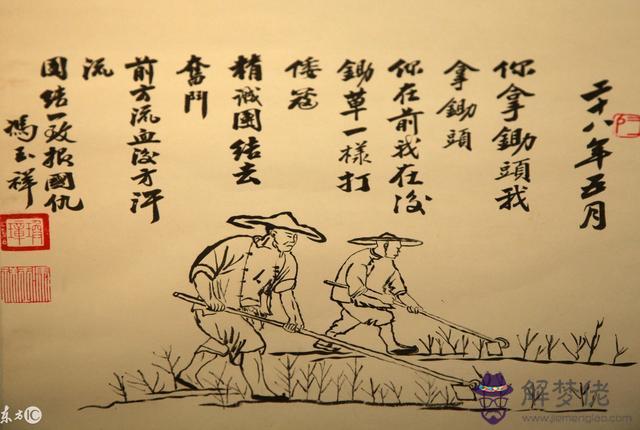 二十八年五月
你拿鋤頭我
拿鋤頭
你在前我在後
鋤草一樣打
倭寇
精诚團结去
奮鬥
前方流血後方汗
流
團结一致报國仇
馮玉祥
东方IC
解梦佬
www.jiemenglao.com